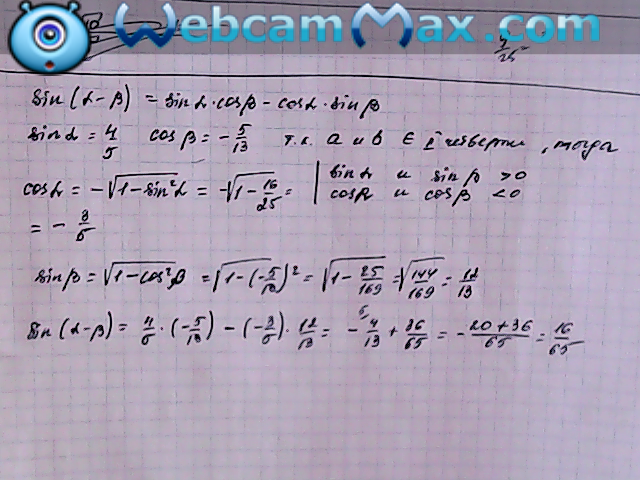 WebcamMax.com
sin(α-β) = sinα·cosβ - cosα·sinβ
sinα = 4/5 cosβ = -5/13 т.к. α и β ∈ II четверти, тогда
cosα = -√(1-sin²α) = -√(1-16/25) = | sinα и sinβ > 0
= -3/5 | cosα и cosβ < 0
sinβ = √(1-cos²β) = √(1-(-5/13)²) = √(1-25/169) = √(144/169) = 12/13
sin(α-β) = 4/5 · (-5/13) - (-3/5) · 12/13 = -4/13 + 36/65 = -20+36/65 = 16/65